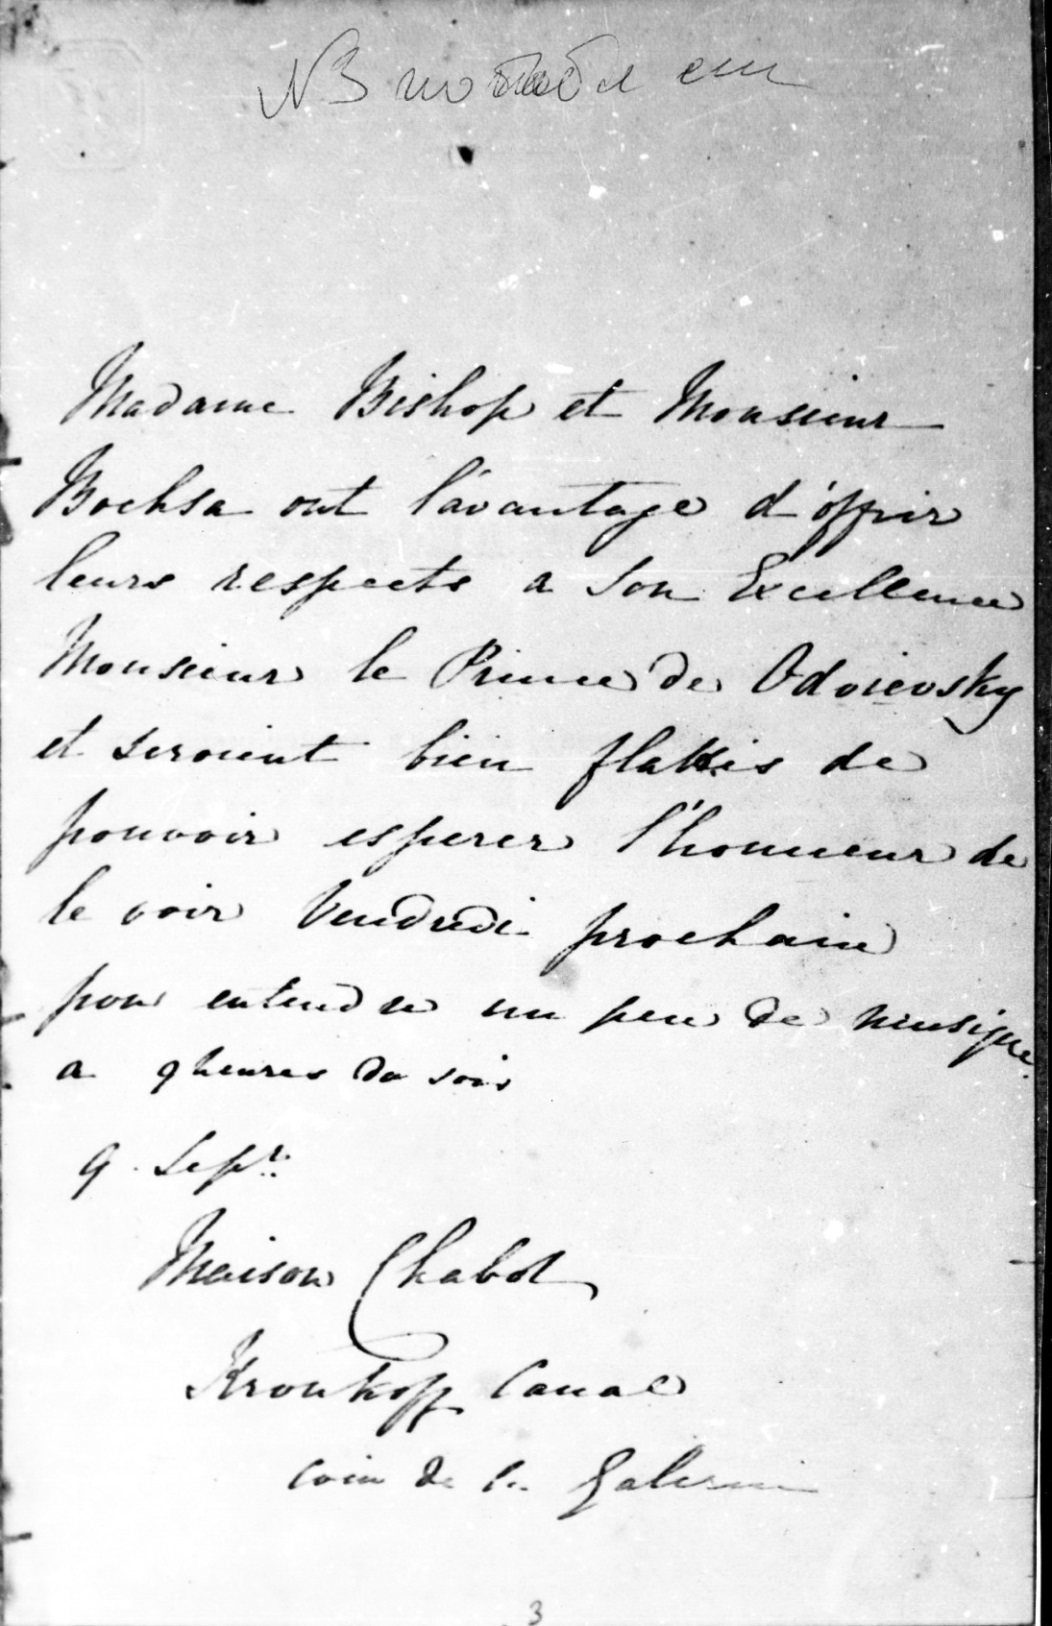 NB
Madame Bishop et Monsieur
Bochsa ont l'avantage d'offrir
leurs respects a Son Excellence
Monsieur le Prince de Odoievsky
et seroient bien flattés de
pouvoir esperer l'honneur de
le voir Vendredi prochain
pour entendre un peu de musique
a 9 heures du soir
9 Sepr.
Maison Chabot
Kroukoff Canal
coin de la
3